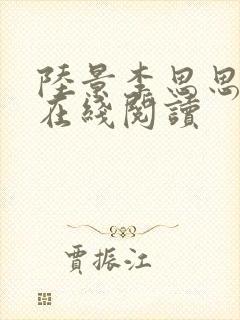 陸景李思思
在綫閱讀
賈振江